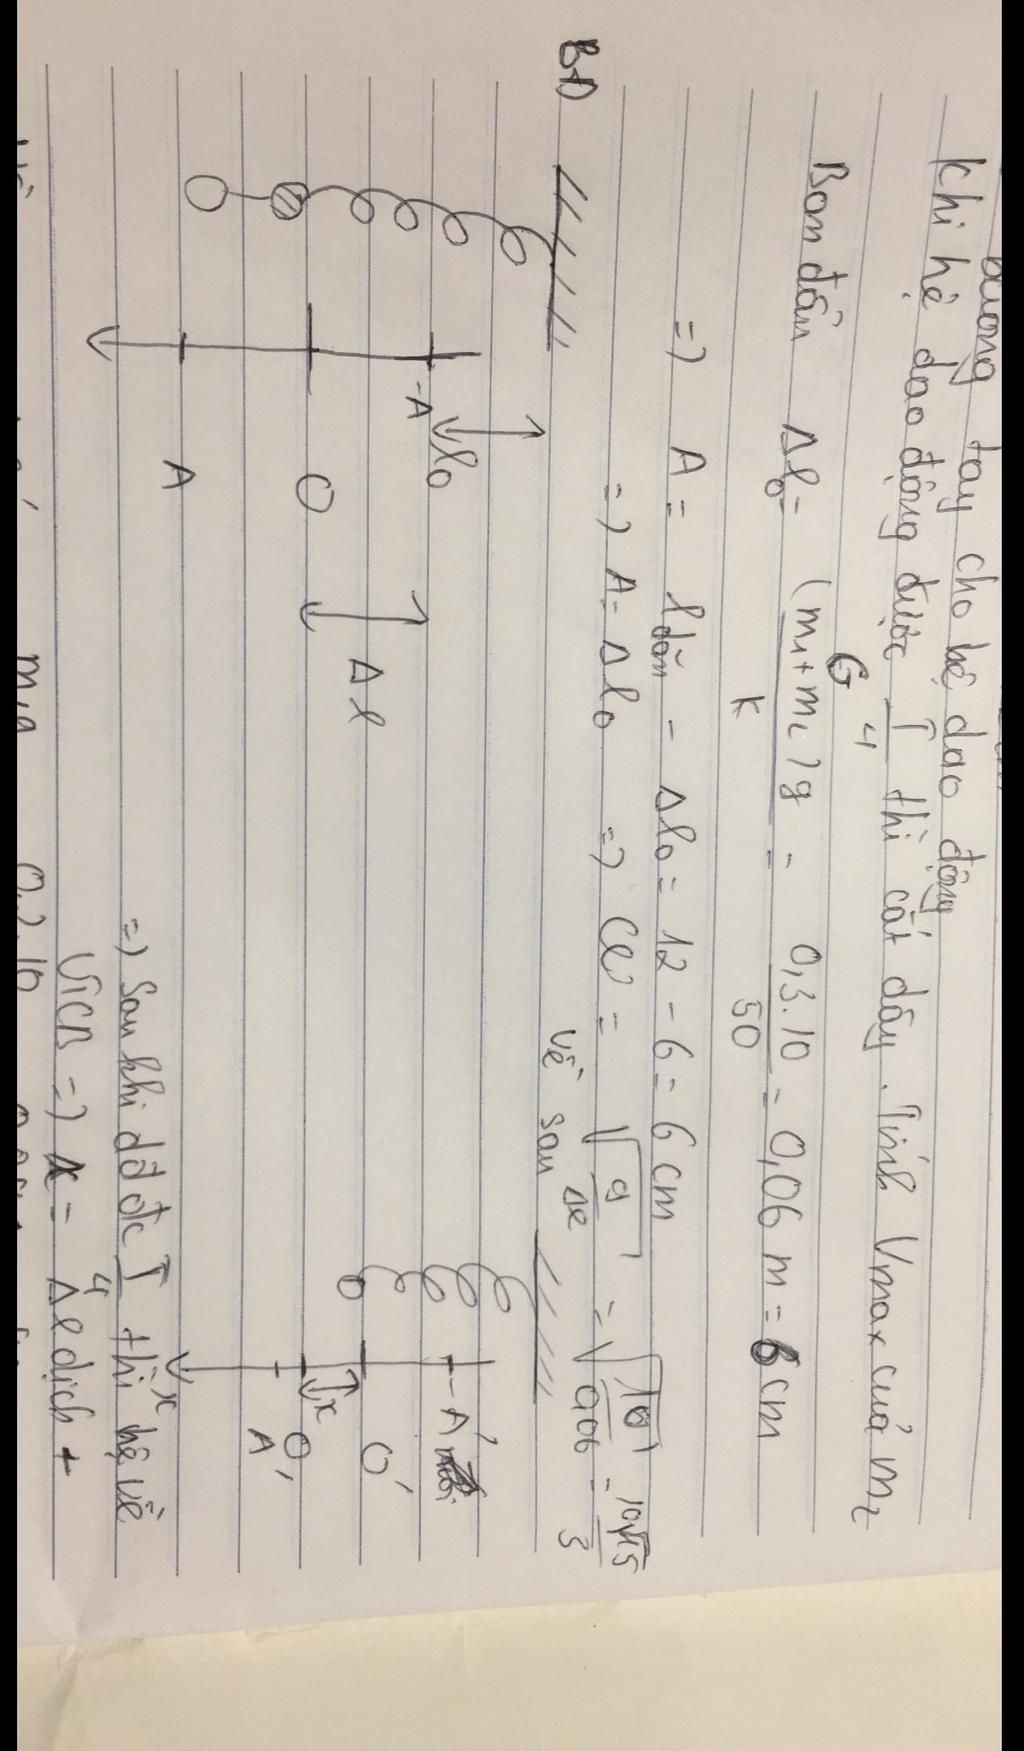 buông tay cho hệ dao động
khi hệ dao động được T/4 thì cắt dây. Tính Vmax của m2
Ban đầu Δl0 = (m1+m2)g / k = 0,3.10 / 50 = 0,06 m = 6 cm
=) A = l dãn - Δl0 = 12 - 6 = 6 cm
=) A = Δl0 =) ω = √(g/Δl) = √(10/0,06) = 10√15/3
BĐ
Về sau
-A
l0
O
Δl
A
-A'
O'
x
O
A'
x
=) Sau khi dđ đc T/4 thì hệ về
VTCB =) x = Δl dịch +
m1g
0,2.10